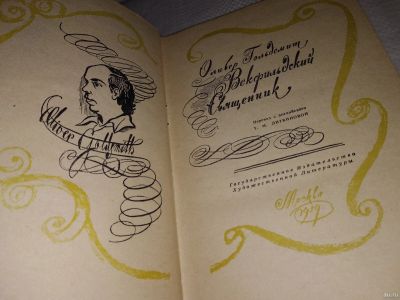 Oliver Goldsmith
Оливер Гольдсмит
Векфильдский
Священник
Перевод с английского
Т. М. Литвиновой
Государственное Издательство
Художественной Литературы
Москва
1959